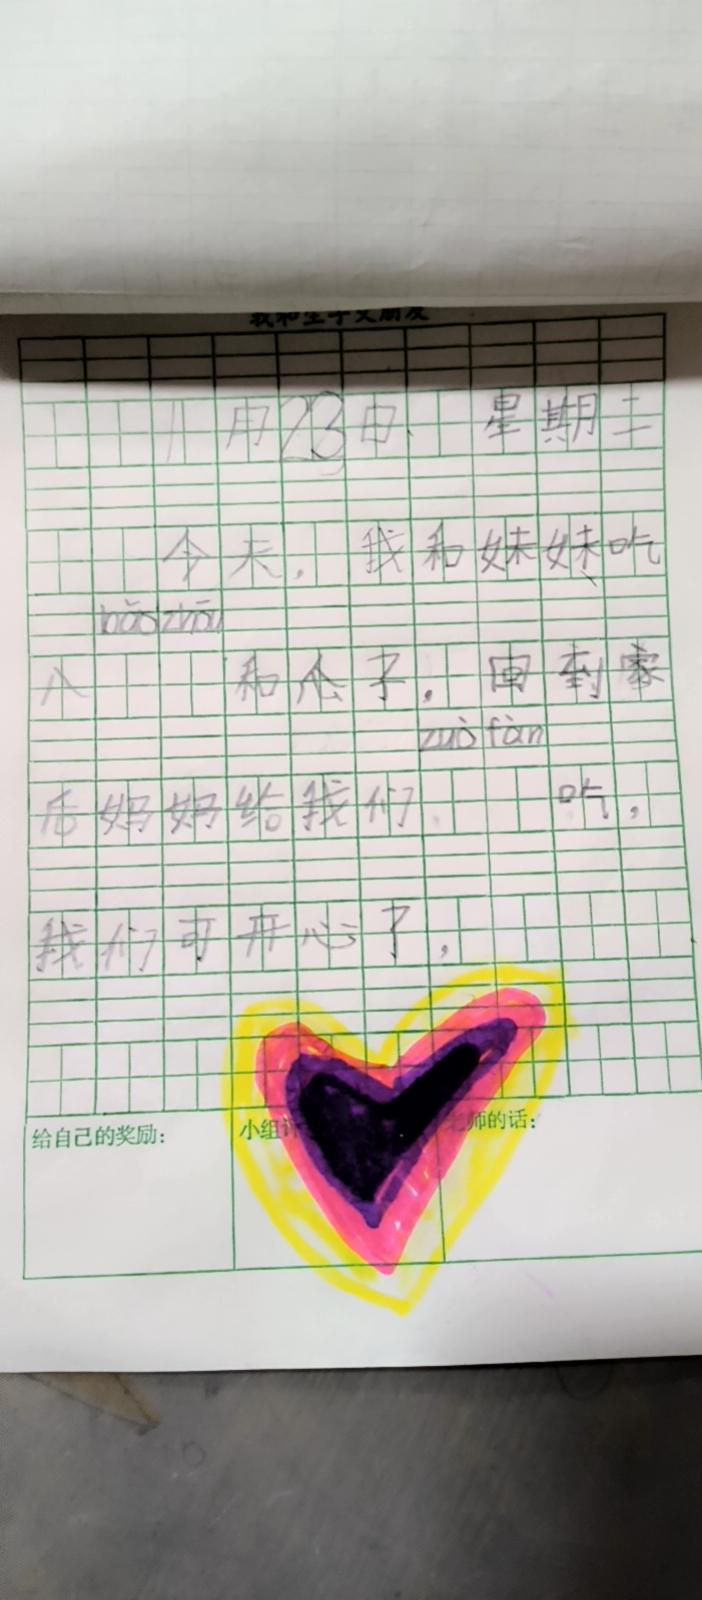 我和生字交朋友
11月23日 星期二
今天,我和妹妹吃
bào zhōu
八 和瓜子,回到家
zuò fàn
后妈妈给我们 吃,
我们可开心了,
给自己的奖励: 小组评 老师的话: